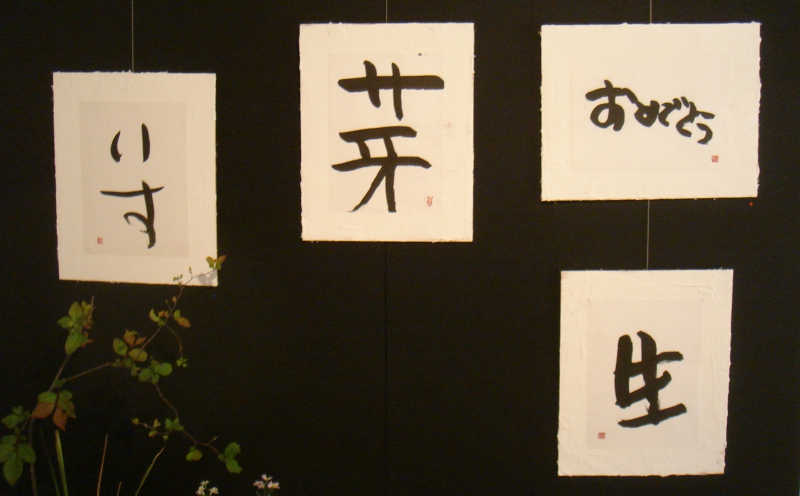 いす
芽
おめでとう
生